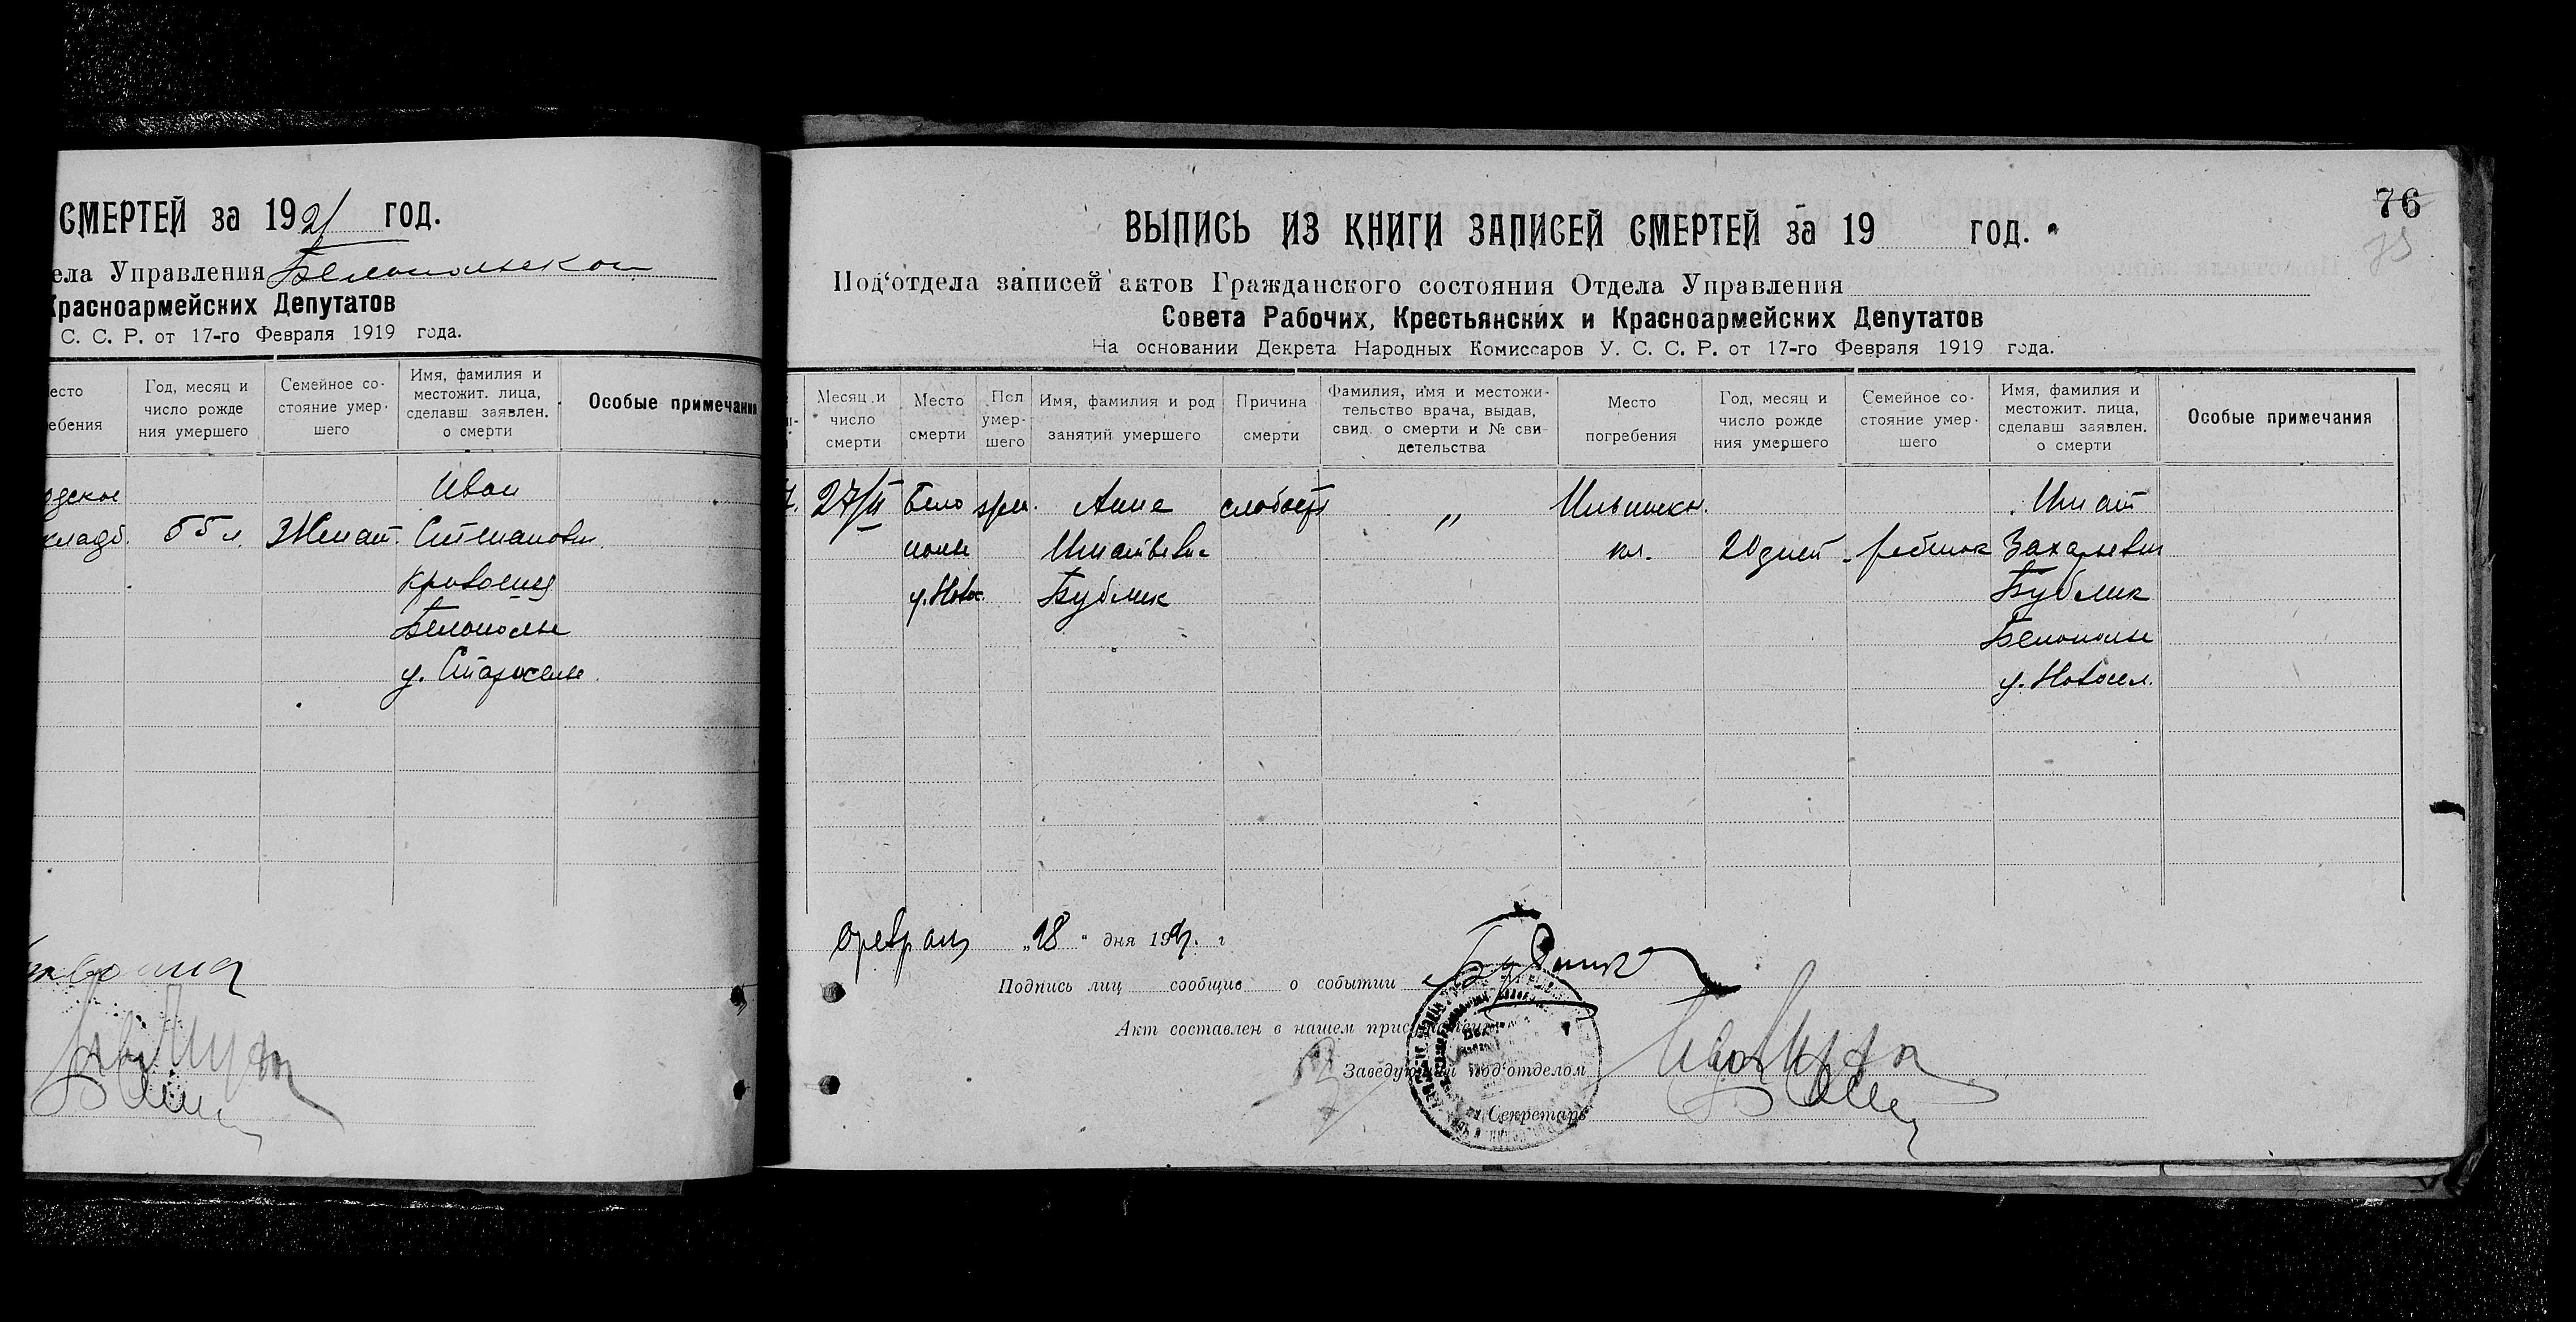 СМЕРТЕЙ за 1921 год.
ела Управления Белопольской
Красноармейских Депутатов
С. С. Р. от 17-го Февраля 1919 года.
есто
ебения
Год, месяц и
число рожде
ния умершего
Семейное со-
стояние умер-
шего
Имя, фамилия и
местожит. лица,
сделавш заявлен.
о смерти
Особые примечания
одское
кладб.
55 л.
Женат.
Иван
Степанович
Кривошея
Белополье
у. Староселье.
76
75
ВЫПИСЬ ИЗ КНИГИ ЗАПИСЕЙ СМЕРТЕЙ за 19 год.
Под'отдела записей актов Гражданского состояния Отдела Управления
Совета Рабочих, Крестьянских и Красноармейских Депутатов
На основании Декрета Народных Комиссаров У. С. С. Р. от 17-го Февраля 1919 года.
Месяц и
число
смерти
Место
смерти
Пол
умер-
шего
Имя, фамилия и род
занятий умершего
Причина
смерти
Фамилия, имя и местожи-
тельство врача, выдав,
свид. о смерти и № сви-
детельства
Место
погребения
Год, месяц и
число рожде
ния умершего
Семейное со-
стояние умер-
шего
Имя, фамилия и
местожит. лица,
сделавш заявлен.
о смерти
Особые примечания
27/II
Бело
полье
у. Новос.
Анна
Игнатьевна
Бублик
слабость
"
Ильинск.
кл.
20 дней
ребенок
Игнат
Захарьевич
Бублик
Белополье
у. Новосел.
февраль „28" дня 1921. г
Подпись лиц сообщив о событии Бублик
Акт составлен в нашем присутствии
Заведующий под'отделом
Секретарь